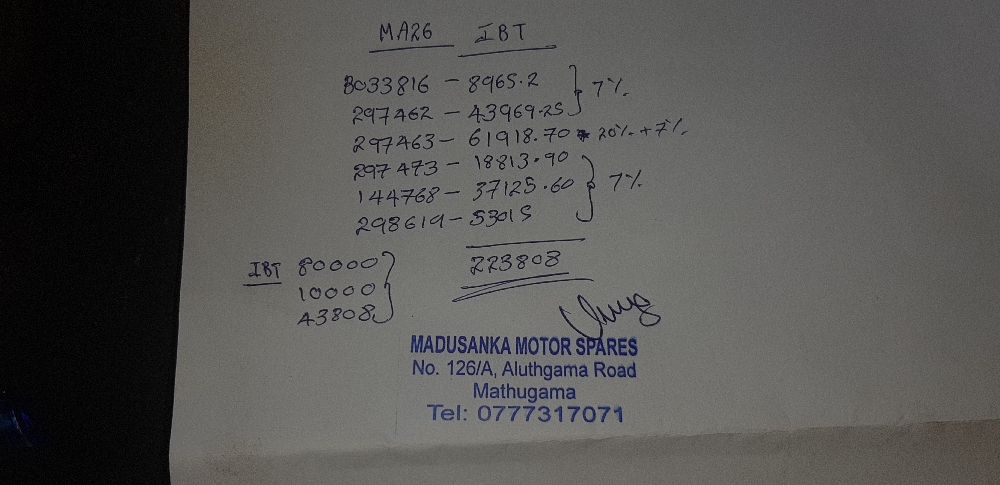 MA26 IBT
B033816 - 8965.2 } 7%.
297462 - 43969.25
297463 - 61918.70 20%. + 7%.
297473 - 18813.90
144768 - 37125.60 } 7%.
298619 - 53015
223808
IBT 80000
10000
43808
MADUSANKA MOTOR SPARES
No. 126/A, Aluthgama Road
Mathugama
Tel: 0777317071